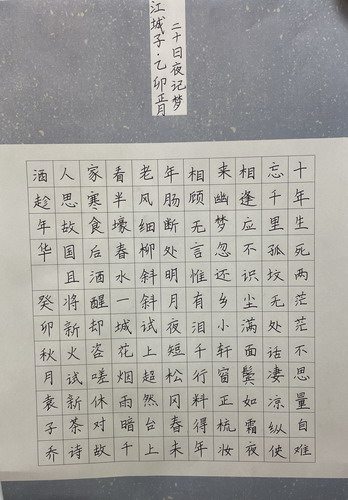 江城子·乙卯正月
二十日夜记梦
十年生死两茫茫不思量自难
忘千里孤坟无处话凄凉纵使
相逢应不识尘满面鬓如霜夜
来幽梦忽还乡小轩窗正梳妆
相顾无言惟有泪千行料得年
年肠断处明月夜短松冈春未
老风细柳斜斜试上超然台上
看半壕春水一城花烟雨暗千
家寒食后酒醒却咨嗟休对故
人思故国且将新火试新茶诗
酒趁年华 癸卯秋月袁子乔